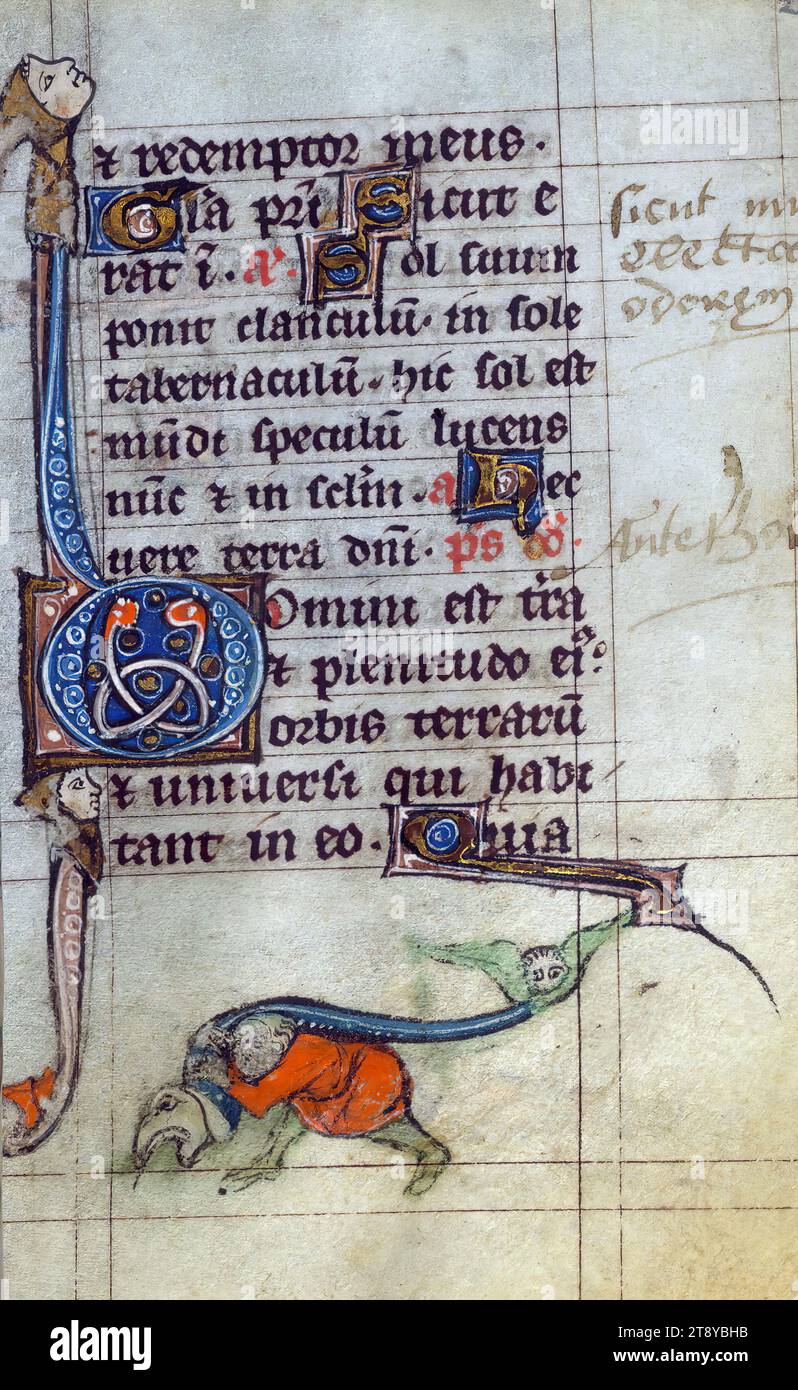 ⁊ redemptor meus.
Gl̄a pr̄i Sicut e
rat ī. a͂. Sol suum
ponit clanculū. in sole
tabernaculū. hic sol est
mūdi speculū lucens
nūc ⁊ in scl̄m. a Hec
uere terra dn̄i. p̄s
Domini est tr̄a
et plenitudo ei⁹.
orbis terrarū
⁊ uniuersi qui habi
tant in eo. Quia
sicut
electa
odorem
Ante
alamy
Image ID: 2T8YBHB
www.alamy.com